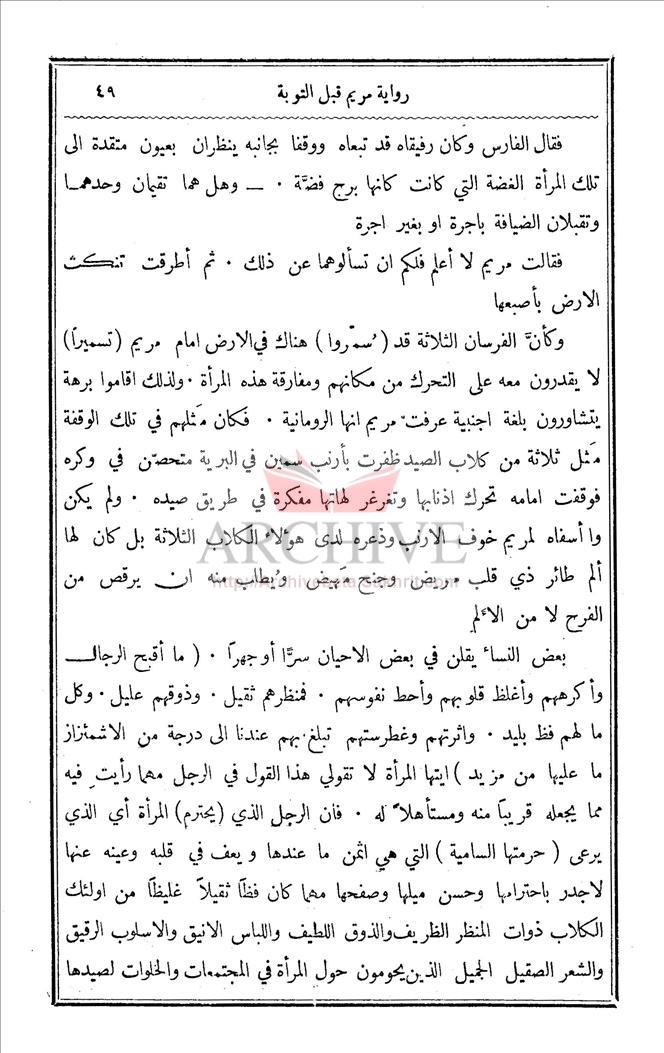 رواية مريم قبل التوبة ٤٩
فقال الفارس وكان رفيقاه قد تبعاه ووقفا بجانبه ينظران بعيون متقدة الى
تلك المرأة الغضة التي كانت كانها برج فضَّة ٠ — وهل هما تقيمان وحدهمـا
وتقبلان الضيافة باجرة او بغير اجرة
فقالت مريم لا أعلم فلكم ان تسألوهما عن ذلك ٠ ثم أطرقت تنكـث
الارض بأصبعها
وكأنَّ الفرسان الثلاثة قد (سُمّروا) هناك في الارض امام مريم (تسميراً)
لا يقدرون معه على التحرك من مكانهم ومفارقة هذه المرأة ٠ ولذلك اقاموا برهة
يتشاورون بلغة اجنبية عرفتْ مريم انها الرومانية ٠ فكان مَثلهم في تلك الوقفة
مَثل ثلاثة من كلاب الصيد ظفرت بأرنب سمين في البرية متحصّن في وكره
فوقفت امامه تحرك اذنابها وتغرغر لهاتها مفكرة في طريق صيده ٠ ولم يكن
وا أسفاه لمريم خوف الارنب وذعره لدى هؤلاء الكلاب الثلاثة بل كان لها
ألم طائر ذي قلب مريض وجنح مَهيض ويُطلب منه ان يرقص من
الفرح لا من الأَلم
بعض النساء يقلن في بعض الاحيان سرًّا أو جهراً ٠ ( ما أقبح الرجال
وأكرههم وأغلظ قلوبهم وأحط نفوسهم ٠ فمنظرهم ثقيل ٠ وذوقهم عليل ٠ وكل
ما لهم فظ بليد ٠ واثرتهم وغطرستهم تبلغ بهم عندنا الى درجة من الاشمئزاز
ما عليها من مزيد ) ايتها المرأة لا تقولي هذا القول في الرجل مهما رأيتِ فيه
مما يجعله قريباً منه ومستأهلاً له ٠ فان الرجل الذي (يحترم) المرأة أي الذي
يرعى ( حرمتها السامية ) التي هي اثمن ما عندها ويعف في قلبه وعينه عنها
لاجدر باحترامها وحسن ميلها وصفحها مهما كان فظًا ثقيلاً غليظًا من اولئك
الكلاب ذوات المنظر الظريف والذوق اللطيف واللباس الانيق والاسلوب الرقيق
والشعر الصقيل الجميل الذين يحومون حول المرأة في المجتمعات والخلوات لصيدها
ARCHIVE